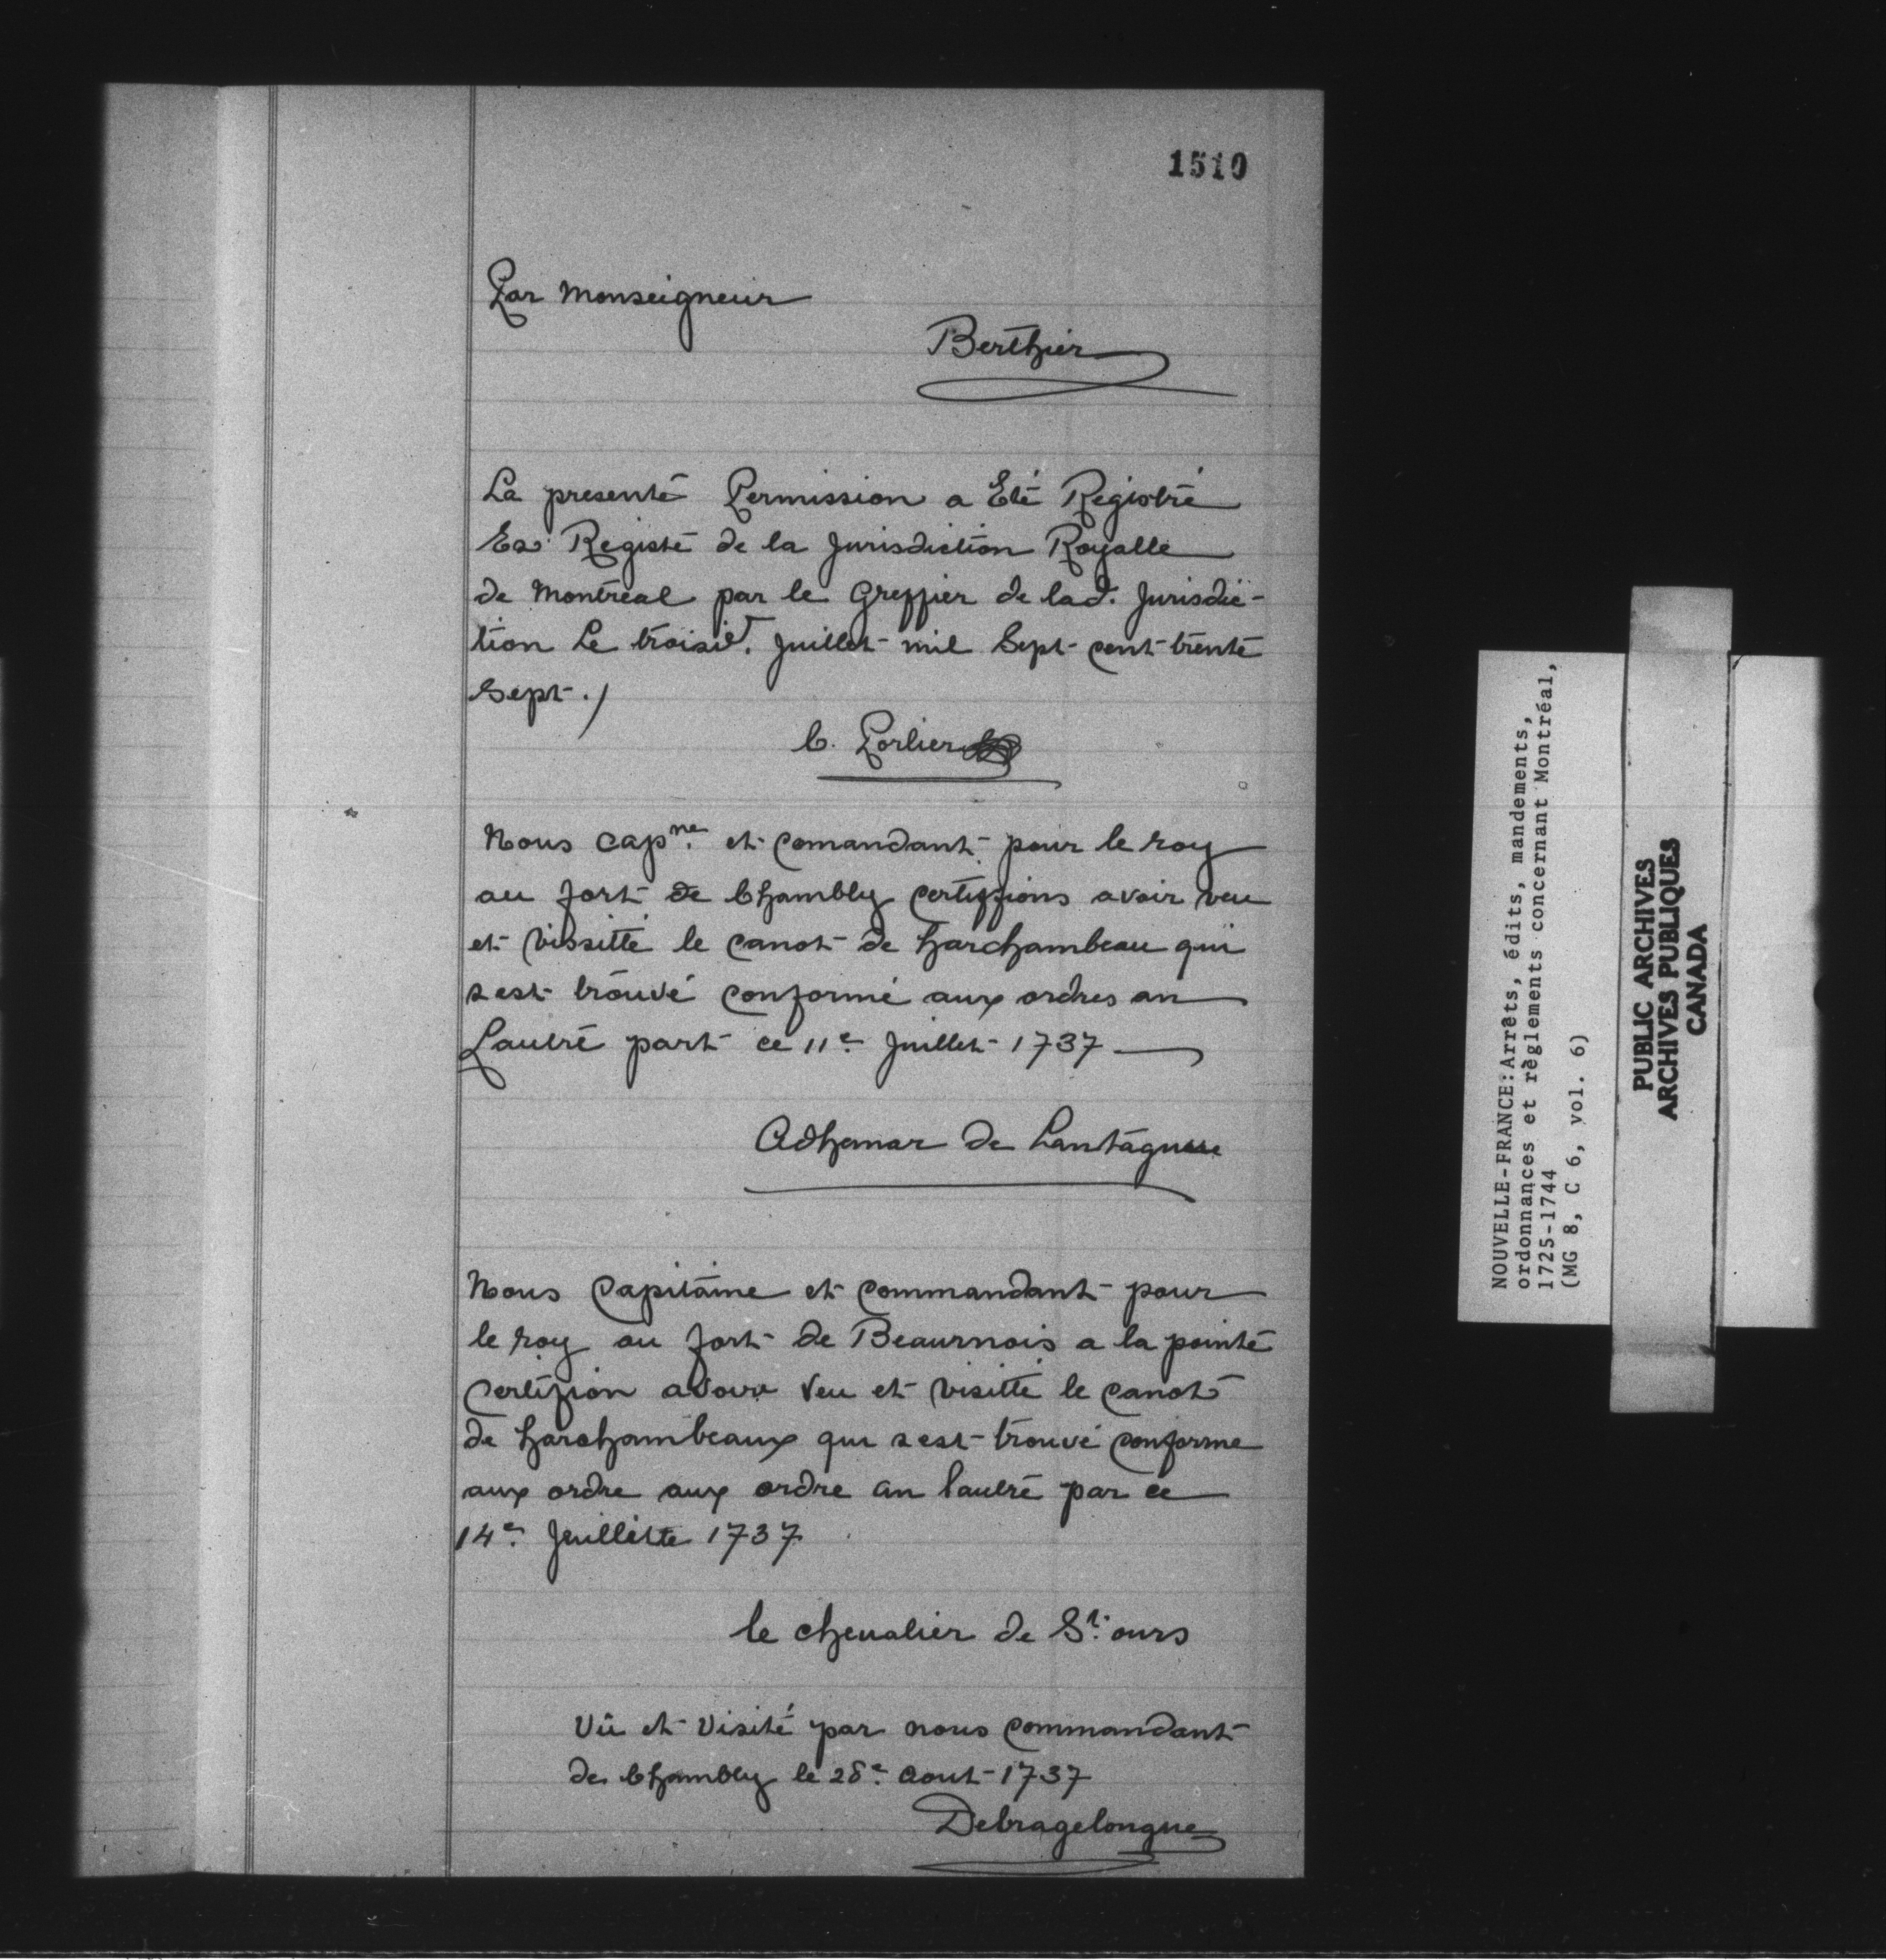 1510
Par Monseigneur
Berthier
La presente Permission a Eté Registré
Es Registe de la Jurisdiction Royalle
de Montreal par le Greffier de lad. Jurisdic-
tion Le troisie. Juillet mil Sept cent trente
Sept ./
C. Porlier
Nous Capne. et comandant pour le roy
au fort de Chambly certiffions avoir veu
et vissitté le canot de harchambeau qui
sest trouvé conforme aux ordres an
Lautre part ce 11e. Juillet 1737
Adhemar de Lantagnac
Nous Capitaine et commandant pour
le roy au fort de Beaurnois a la pointe
certifion avoire veu et visitté le canot
de harchambeaux qui sest trouvé conforme
aux ordre aux ordre an lautre par ce
14e. Juillette 1737
le chevalier de St. ours
Vû et visité par nous commandant
de Chambly le 28e. aout 1737
Debragelongne
NOUVELLE-FRANCE: Arrêts, édits, mandements,
ordonnances et règlements concernant Montréal,
1725-1744
(MG 8, C 6, vol. 6)
PUBLIC ARCHIVES
ARCHIVES PUBLIQUES
CANADA